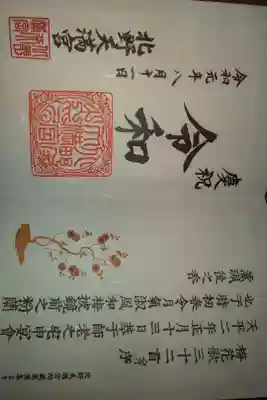 梅花歌三十二首并序
天平二年正月十三日萃于師老之宅申宴會
也于時初春令月氣淑風和梅披鏡前之粉蘭
薫珮後之香
慶祝
令和
令和元年八月十一日
北野天満宮